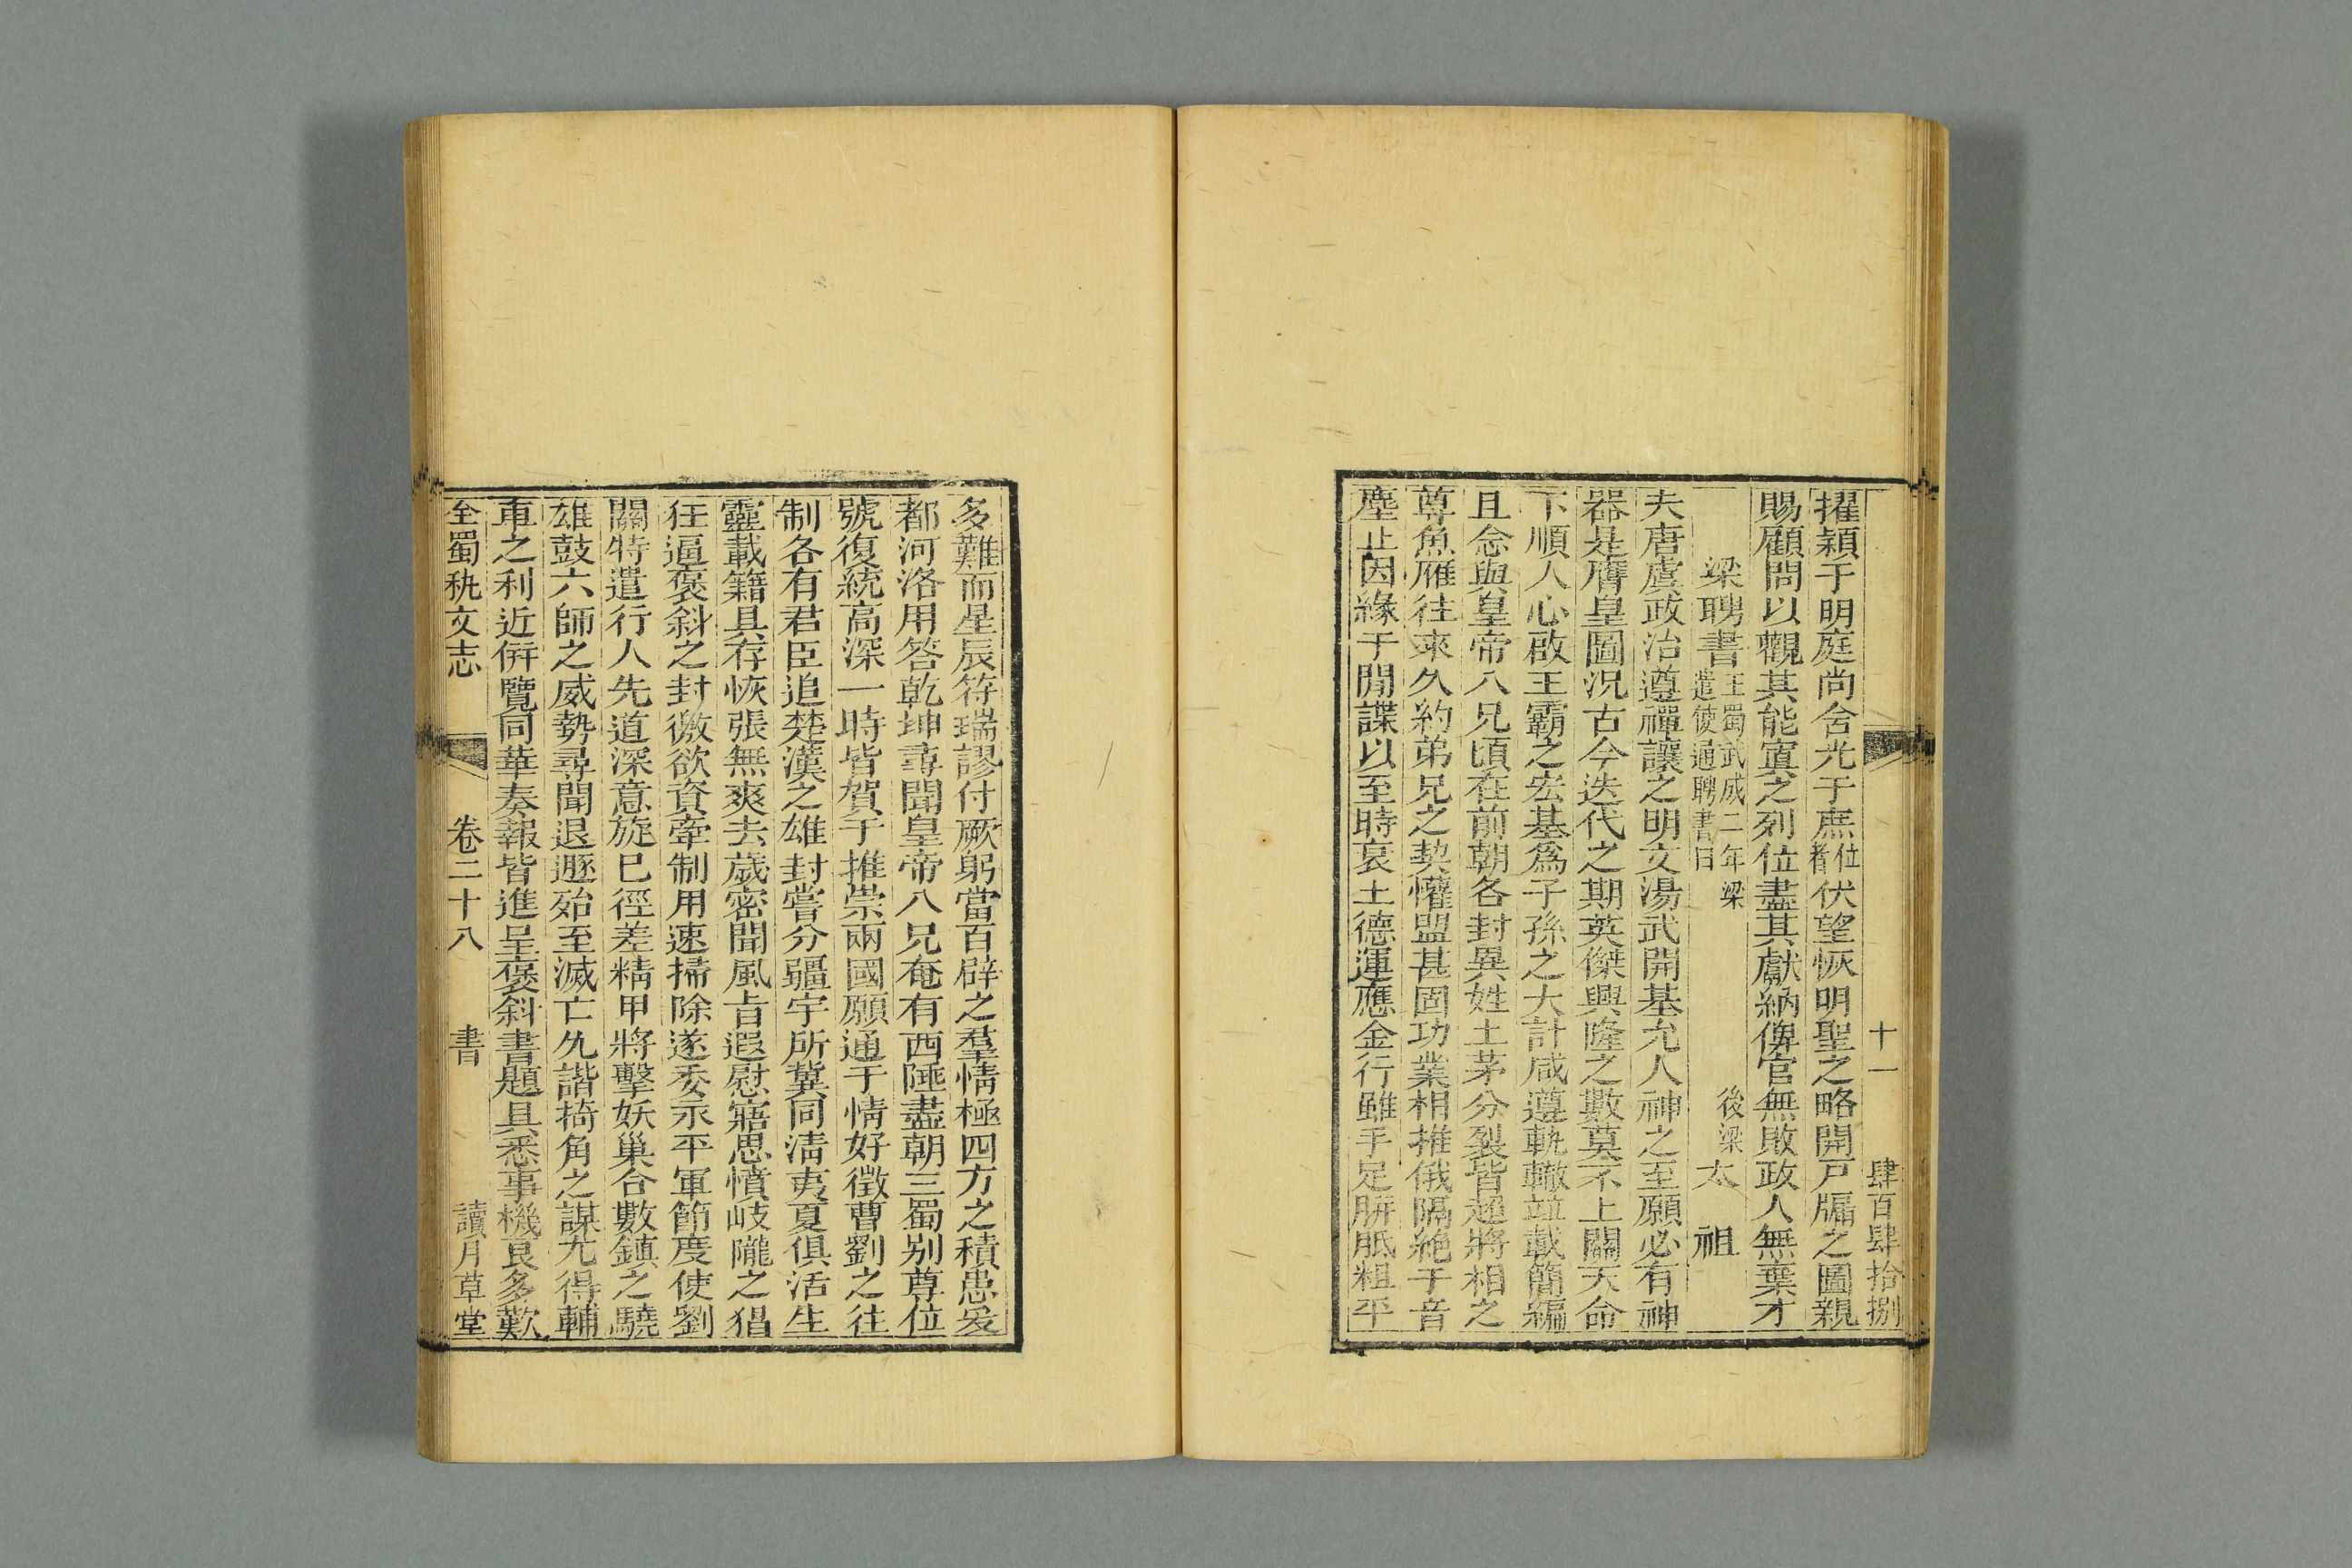 十一　肆百肆拾捌
擢穎于明庭尚含光于庶位者伏望恢明聖之略開戸牖之圖親
賜顧問以觀其能寘之列位盡其獻納俾官無敗政人無棄才
梁聘書王蜀武成二年梁遣使通聘書曰　後梁太祖
夫唐虞政治遵禪讓之明文湯武開基允人神之至願必有神
器是膺皇圖况古今迭代之期英傑興隆之數莫不上關天命
下順人心啟王霸之宏基爲子孫之大計咸遵軌轍並載簡編
且念與皇帝八兄頃在前朝各封異姓土茅分裂皆超將相之
尊魚雁往來久約弟兄之契懽盟甚固功業相推俄隔絶于音
塵止因緣于閒諜以至時衰土德運應金行雖手足胼胝粗平
多難而星辰符瑞謬付厥躬當百辟之羣情極四方之積患爰
都河洛用答乾坤尋聞皇帝八兄奄有西陲盡朝三蜀别尊位
號復統高深一時皆賀于推崇兩國願通于情好徵曹劉之往
制各有君臣追楚漢之雄封嘗分疆宇所冀同淸夷夏俱活生
靈載籍具存恢張無爽去歲密聞風旨遐慰寤思憤岐隴之猖
狂逼褒斜之封徼欲資牽制用速掃除遂委永平軍節度使劉
關特遣行人先道深意旋已徑差精甲將擊妖巢合數鎮之驍
雄鼓六師之威勢尋聞退遯殆至滅亡允諧掎角之謀尤得輔
車之利近併覽同華奏報皆進呈褒斜書題具悉事機良多歎
全蜀秇文志　卷二十八　書　讀月草堂